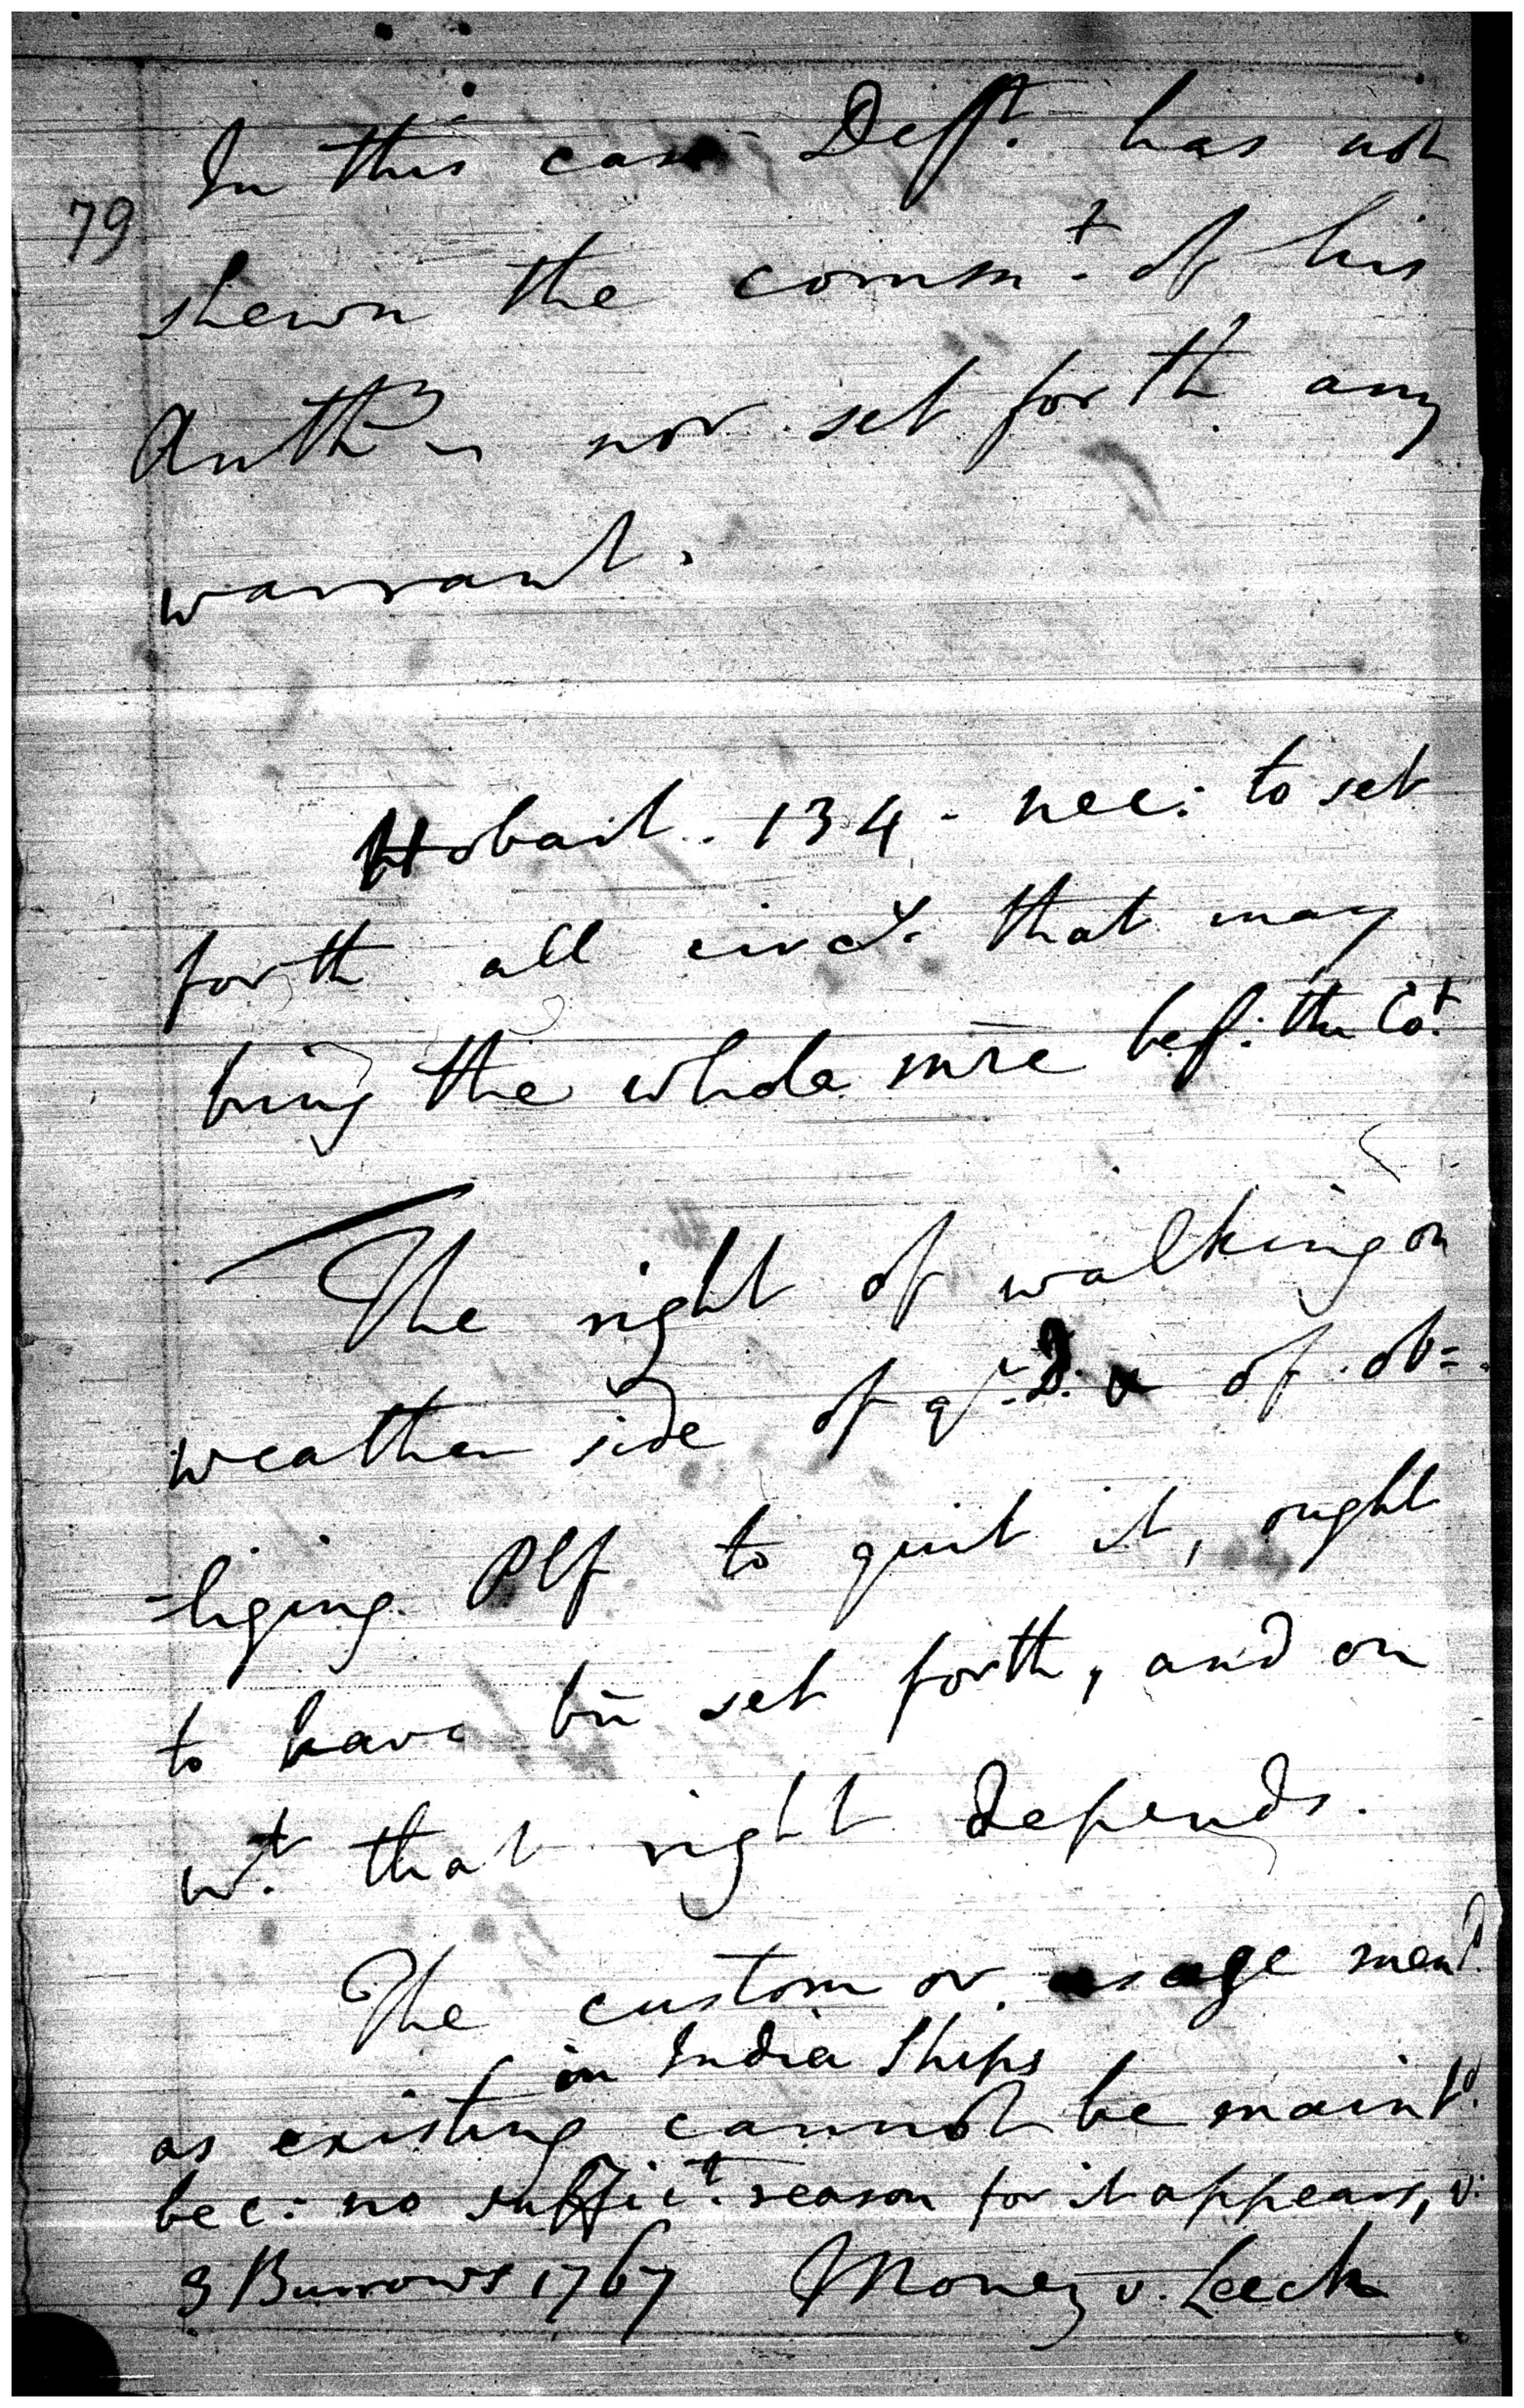 In this case Defft. has not
79
shewn the commt. of his
Authy nor set forth any
warrant.
Hobart. 134 - nec: to set
forth all circs. that may
bring the whole mre bef: the Cot.
The right of walking on
weather side of qr. D. & of ob=
=liging Plf to quit it, ought
to have bn set forth, and on
wt. that right depends.
The custom or usage mend.
in India Ships
as existing cannot be maintd.
bec: no suffict. reason for it appears, v:
3 Burrows 1767 Money v. Leech